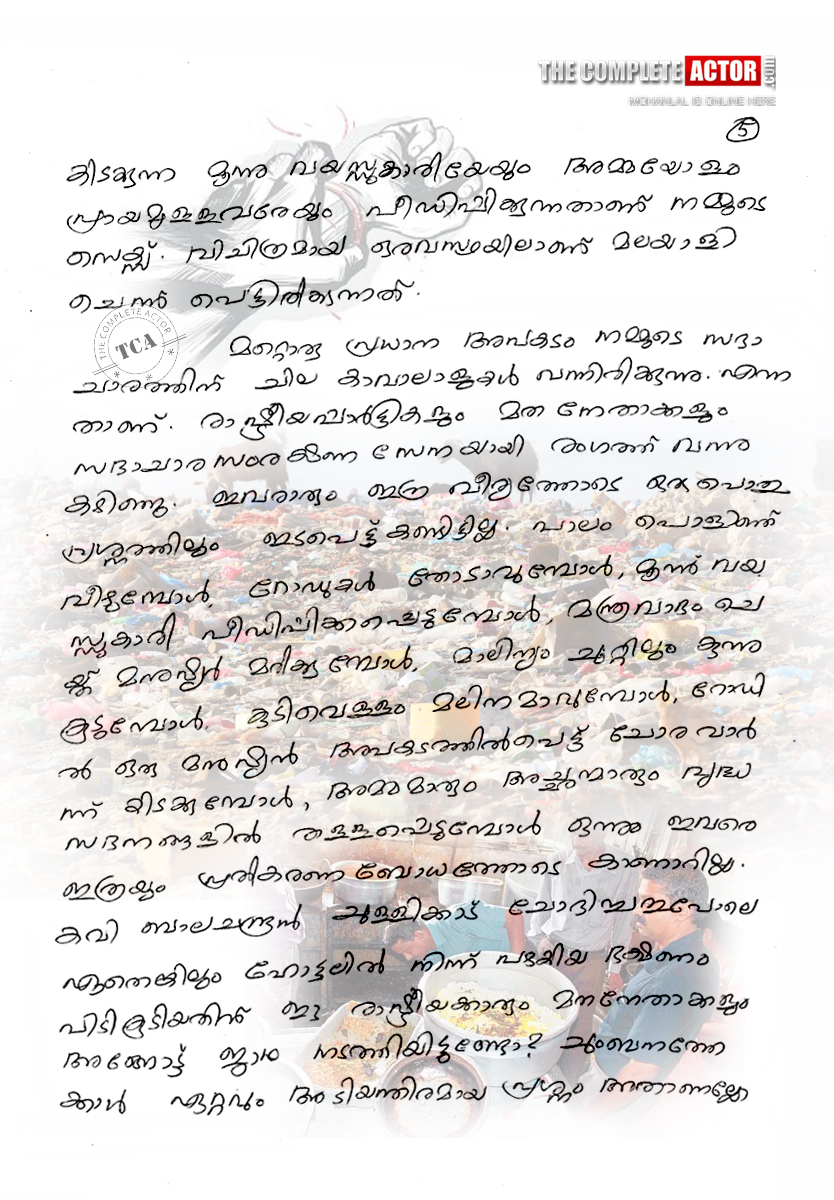 THE COMPLETE ACTOR .com
MOHANLAL IS ONLINE HERE
5
കിടക്കുന്ന മൂന്നു വയസ്സുകാരിയേയും അമ്മയോളം
പ്രായമുള്ളവരേയും പീഡിപ്പിക്കുന്നതാണ് നമ്മുടെ
സെക്സ്. വിചിത്രമായ ഒരവസ്ഥയിലാണ് മലയാളി
ചെന്ന് പെട്ടിരിക്കുന്നത്.
THE COMPLETE ACTOR
TCA
മറ്റൊരു പ്രധാന അപകടം നമ്മുടെ സദാ
ചാരത്തിന് ചില കാവാലാളുകൾ വന്നിരിക്കുന്നു. എന്ന
താണ്. രാഷ്ട്രീയപ്പാർട്ടികളും മത നേതാക്കളും
സദാചാര സംരക്ഷണ സേനയായി രംഗത്ത് വന്നു
കഴിഞ്ഞു. ഇവരാരും ഇത്ര വീര്യത്തോടെ ഒരു പൊതു
പ്രശ്നത്തിലും ഇടപെട്ട് കണ്ടിട്ടില്ല. പാലം പൊളിഞ്ഞ്
വീഴുമ്പോൾ, റോഡുകൾ തോടാവുമ്പോൾ, മൂന്ന് വയ
സ്സുകാരി പീഡിപ്പിക്കപ്പെടുമ്പോൾ, മന്ത്രവാദം ചെ
യ്ത് മനുഷ്യൻ മരിക്കുമ്പോൾ, മാലിന്യം ചുറ്റിലും കുന്നു
കൂടുമ്പോൾ, കുടിവെള്ളം മലിനമാവുമ്പോൾ, റോഡി
ൽ ഒരു മനുഷ്യൻ അപകടത്തിൽപെട്ട് ചോര വാർ
ന്ന് കിടക്കുമ്പോൾ, അമ്മമാരും അച്ഛന്മാരും വൃദ്ധ
സദനങ്ങളിൽ തള്ളപ്പെടുമ്പോൾ ഒന്നും ഇവരെ
ഇത്രയും പ്രതികരണ ബോധത്തോടെ കാണാറില്ല.
കവി ബാലചന്ദ്രൻ ചുള്ളിക്കാട് ചോദിച്ചതുപോലെ
ഏതെങ്കിലും ഹോട്ടലിൽ നിന്ന് പഴകിയ ഭക്ഷണം
പിടികൂടിയതിന് ഈ രാഷ്ട്രീയക്കാരും മതനേതാക്കളും
അങ്ങോട്ട് ജാഥ നടത്തിയിട്ടുണ്ടോ? ചുംബനത്തേ
ക്കാൾ ഏറ്റവും അടിയന്തിരമായ പ്രശ്നം അതാണല്ലോ